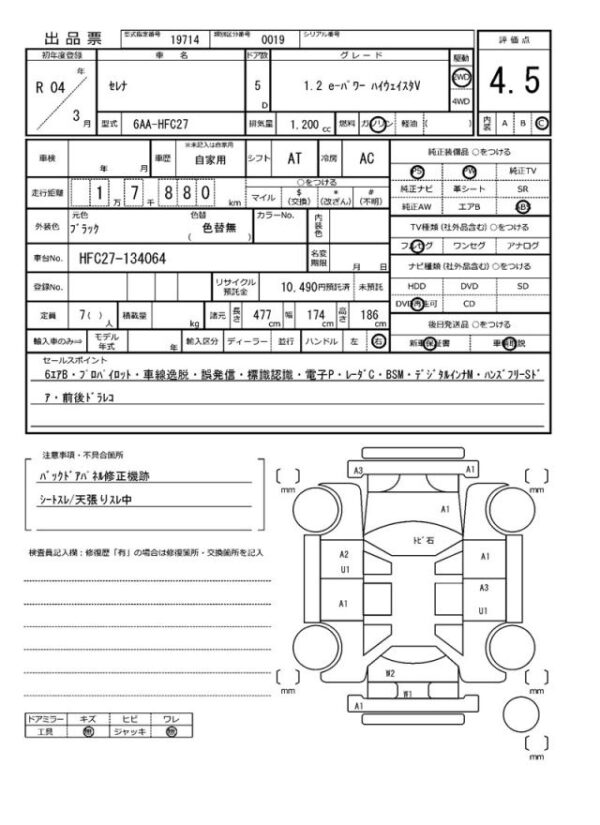 出品票 型式指定番号 19714 類別区分番号 0019 シリアル番号
評価点
初年度登録 車名 ドア数 グレード 駆動
R 04 年 3 月 セレナ 5 D 1.2 e-パワー ハイウェイスタV 2WD 4WD
4.5
型式 6AA-HFC27 排気量 1,200 cc 燃料 ガソリン 軽油 ( )
内装 A B C
車検 年 月 車歴 ※未記入は自家用 自家用 シフト AT 冷房 AC
純正装備品 ○をつける
PS PW 純正TV
純正ナビ 革シート SR
純正AW エアB ABS
走行距離 1 万 7 千 880 km ○をつける マイル $ (交換) * (改ざん) # (不明)
TV種類 (社外品含む) ○をつける
フルセグ ワンセグ アナログ
外装色 元色 ブラック 色替 ( 色替無 ) カラーNo. 内装色
車台No. HFC27-134064 名変期限 月 日
ナビ種類 (社外品含む) ○をつける
HDD DVD SD
DVD再生可 CD
登録No. リサイクル預託金 10,490円預託済 未預託
定員 7( ) 人 積載量 kg 諸元 長さ 477 cm 幅 174 cm 高さ 186 cm
後日発送品 ○をつける
新車保証書 車輌取説
輸入車のみ⇒ モデル年式 年 輸入区分 ディーラー 並行 ハンドル 左 右
セールスポイント
6エアB・プロパイロット・車線逸脱・誤発信・標識認識・電子P・レーダC・BSM・デジタルインナM・ハンズフリーSド
ア・前後ドラレコ
注意事項・不具合箇所
バックドアパネル修正機跡
シートスレ/天張りスレ中
検査員記入欄：修復歴「有」の場合は修復箇所・交換箇所を記入
ドアミラー キズ ヒビ ワレ
工具 無 ジャッキ 無
A3 A1
mm mm
A1
トビ石
A2 U1 A1
A1 A3 U1
W2
mm mm
W1
A1
mm